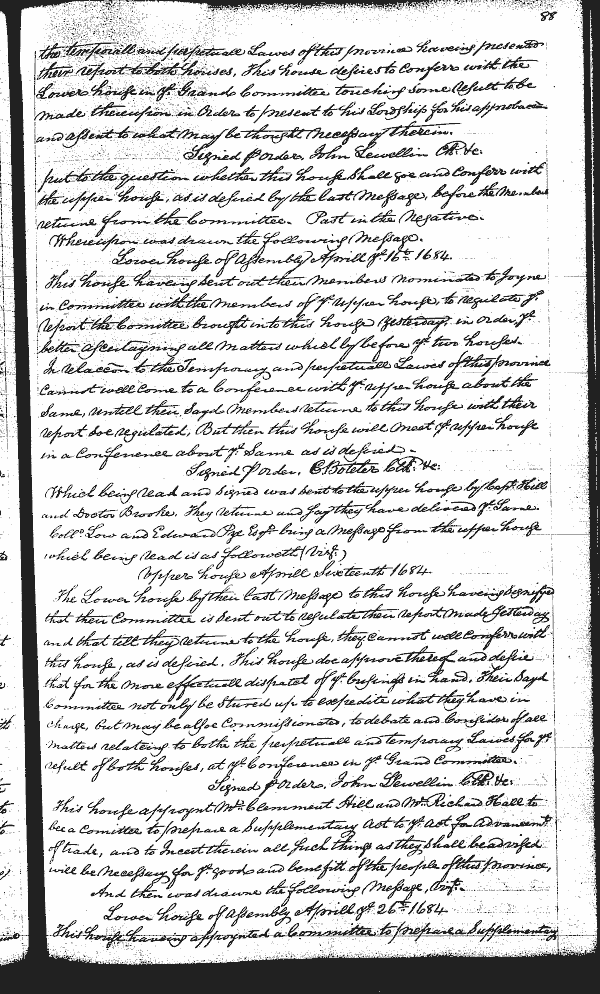 88
the temporall and perpetuall Lawes of this province haveing presented
their report to both houses, This house desires to Conferr with the
Lower house in ye Grand Committee touching some result to be
made thereupon in Order to present to his Lordship for his approbacon
and assent to what may be thought Necessary therein.
Signed p order, John Lewellin Clk. &c.
put to the question whether this house shall goe and Conferr with
the upper house, as is desired by the last Message, before the Members
returne from the Committee. Past in the Negative.
Whereupon was drawn the following Message.
Lower house of Assembly Aprill ye 16th 1684.
This house haveing sent out their Members nominated to Joyne
in Committee with the members of ye upper house, to regulate ye
report the Comittee brought into this house yesterday, in order, ye
better ascertayning all matters which ly before ye two houses.
In relacon to the Temporary and perpetuall Lawes of this province
Cannot well come to a Conference with ye upper house about the
Same, untill their Sayd Members returne to this house with their
report soe regulated, But then this house will meet ye upper house
in a Conference about ye Same as is desired -
Signed p order, E. Boteler Clk. &c.
Which being read and signed was sent to the upper house by Capt. Hill
and Doctor Brooke. They returne and say they have delivered ye Same.
Coll: Low and Edward Pye Esqr. bring a Message from the upper house
which being read is as followeth (vizt.)
Upper house Aprill Sixteenth 1684
The Lower house by their last Message to this house haveing signifyed
that their Committee is sent out to regulate their report made yesterday
and that till they returne to the house, they cannot well conferr with
this house, as is desired. This house doe approve thereof and desire
that for the more effectuall dispatch of ye busings in hand, Their Sayd
Committee not only be stured up to expedite what they have in
charge, but may be alsoe Commissionated, to debate and Consider of all
matters relateing to bothe the perpetuall and temporary Lawes for ye
result of both houses, at ye Conference in ye Grand Committee.
Signed p Order, John Llewellin Clk. &c.
This house appoynt Mr. Clemment Hill and Mr. Richard Hall to
be a Comittee to prepare a Supplementary Act to ye Act for Advancemt.
of trade, and to Incert therein all such things as they shall be advised
will be Necessary for ye good and benefitt of the people of this province,
And then was drawne the following Message, vizt.
Lower house of Assembly Aprill ye 26th 1684
This house haveing appoynted a Committee to prepare a Supplimentary